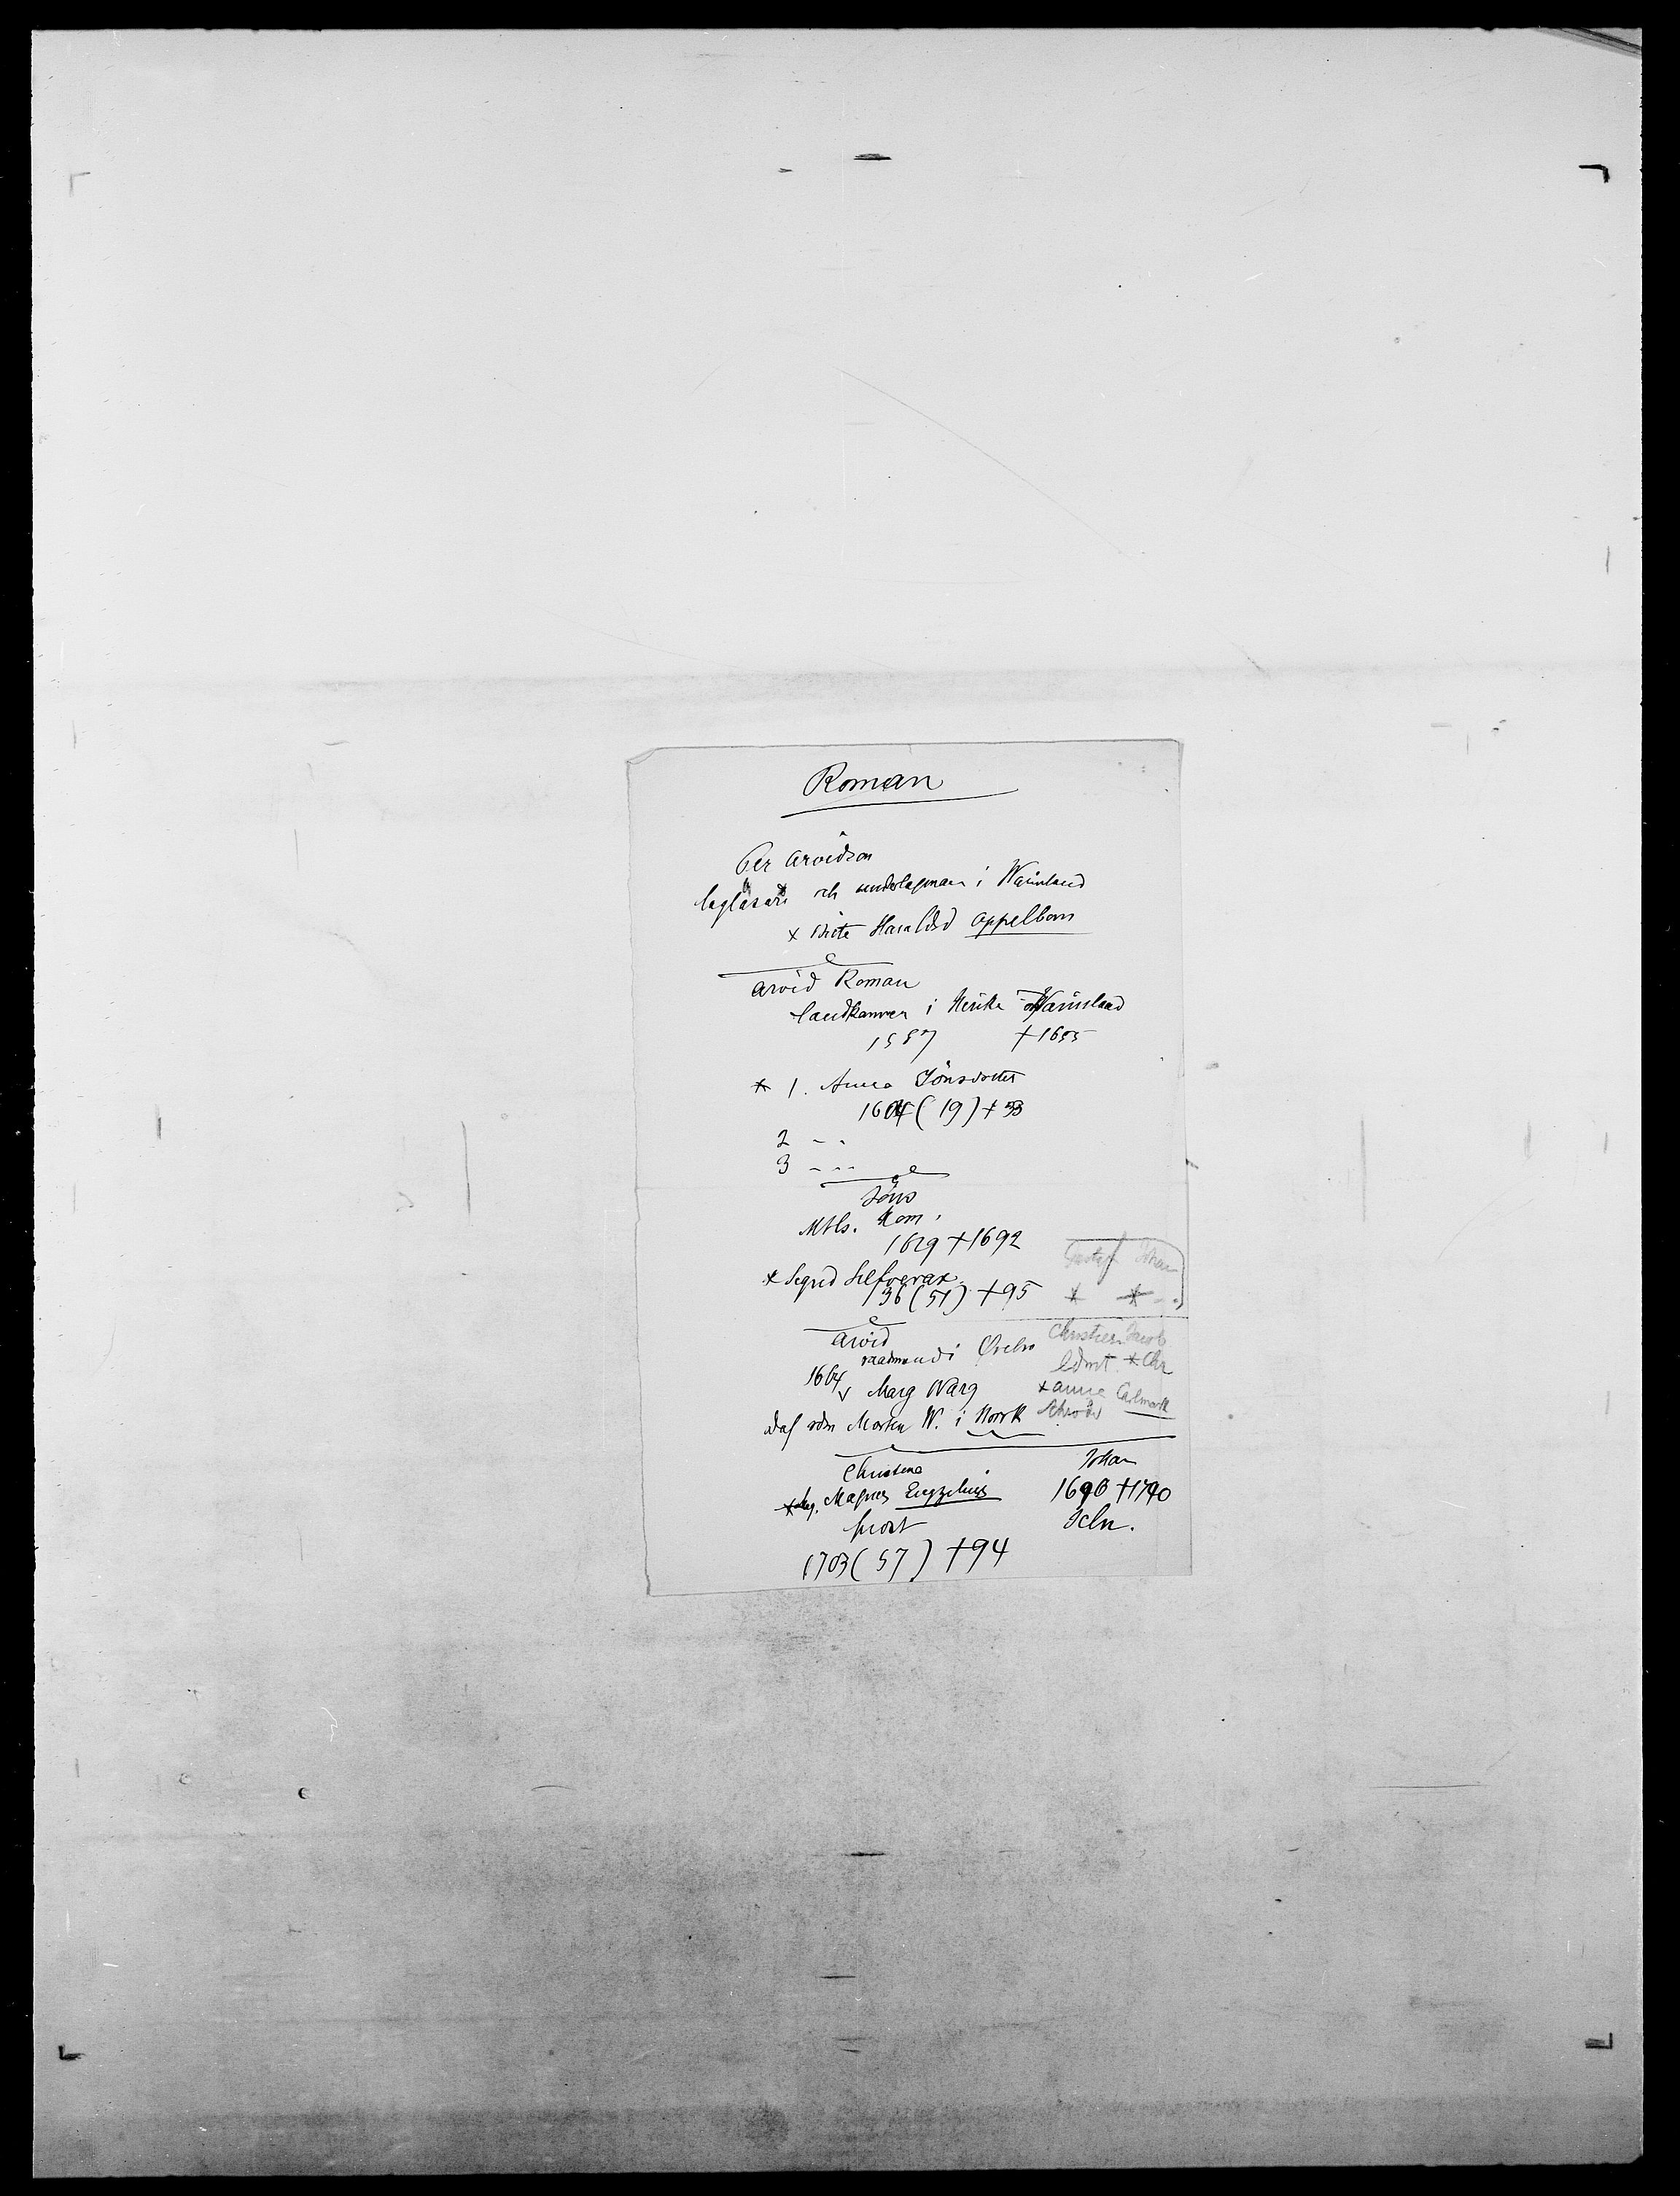 Roman
Per Arvidson
lagläsare och underlagman i Wärmland
x Brita Haraldsd Appelbom
Arvid Roman
landkamrer i Nerike o Wärmland
1587 †1655
x 1. Anna Jönsdotter
1604 (19) † 53
2 - -
3 - - -
Jöns
Mtls. Kom.
1629 †1692
x Sigrid Silfverax
136 (51) †95
Gustaf Johan
x x
Arvid
raadmand i Örebro
1664
v Marg Warg
daf rdm Morten W. i Norrk
Christier Jacob
x Chr
x Anna Calmark
Christina Johan
x Magnus Enggelius 1690 †1740
1703 (57) †94